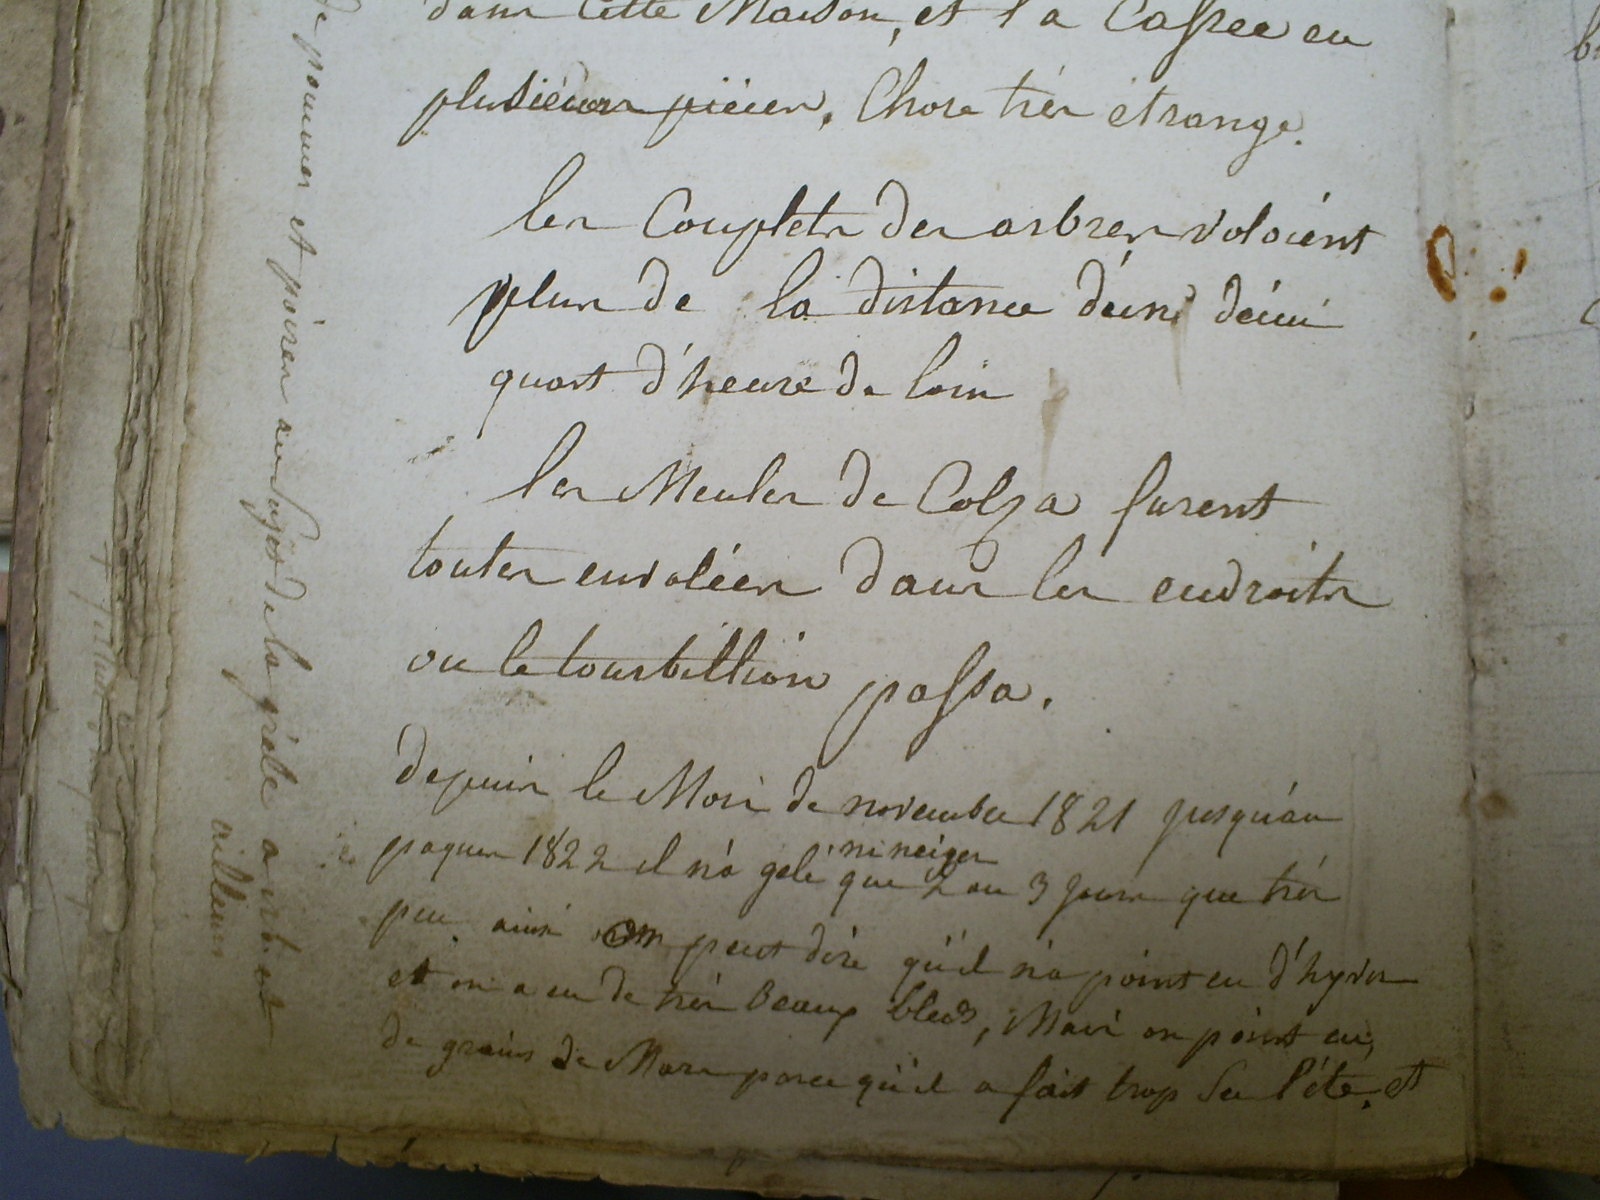 dans Cette Maison, et l'a Cassee en
plusieurs pieces. Chose trés étrange.
les Couplets des arbres voloient
plus de la distance d'une démi
quart d'heure de loin
les Meules de Colza furent
toutes envolées dans les endroits
ou le tourbillion passa.
depuis le Mois de novembre 1821 jusqu'au
paques 1822 il n'a gelé ni neiger que 2 ou 3 jours que trés
peu. ainsi on peut dire qu'il n'a point eu d'hyver
et on a eu de trés beaux bleds, Mais on point eu,
de grains de Mars parce qu'il a fait trop sec l'été. et
de pommes et poires au sujet de la grele
ailleurs